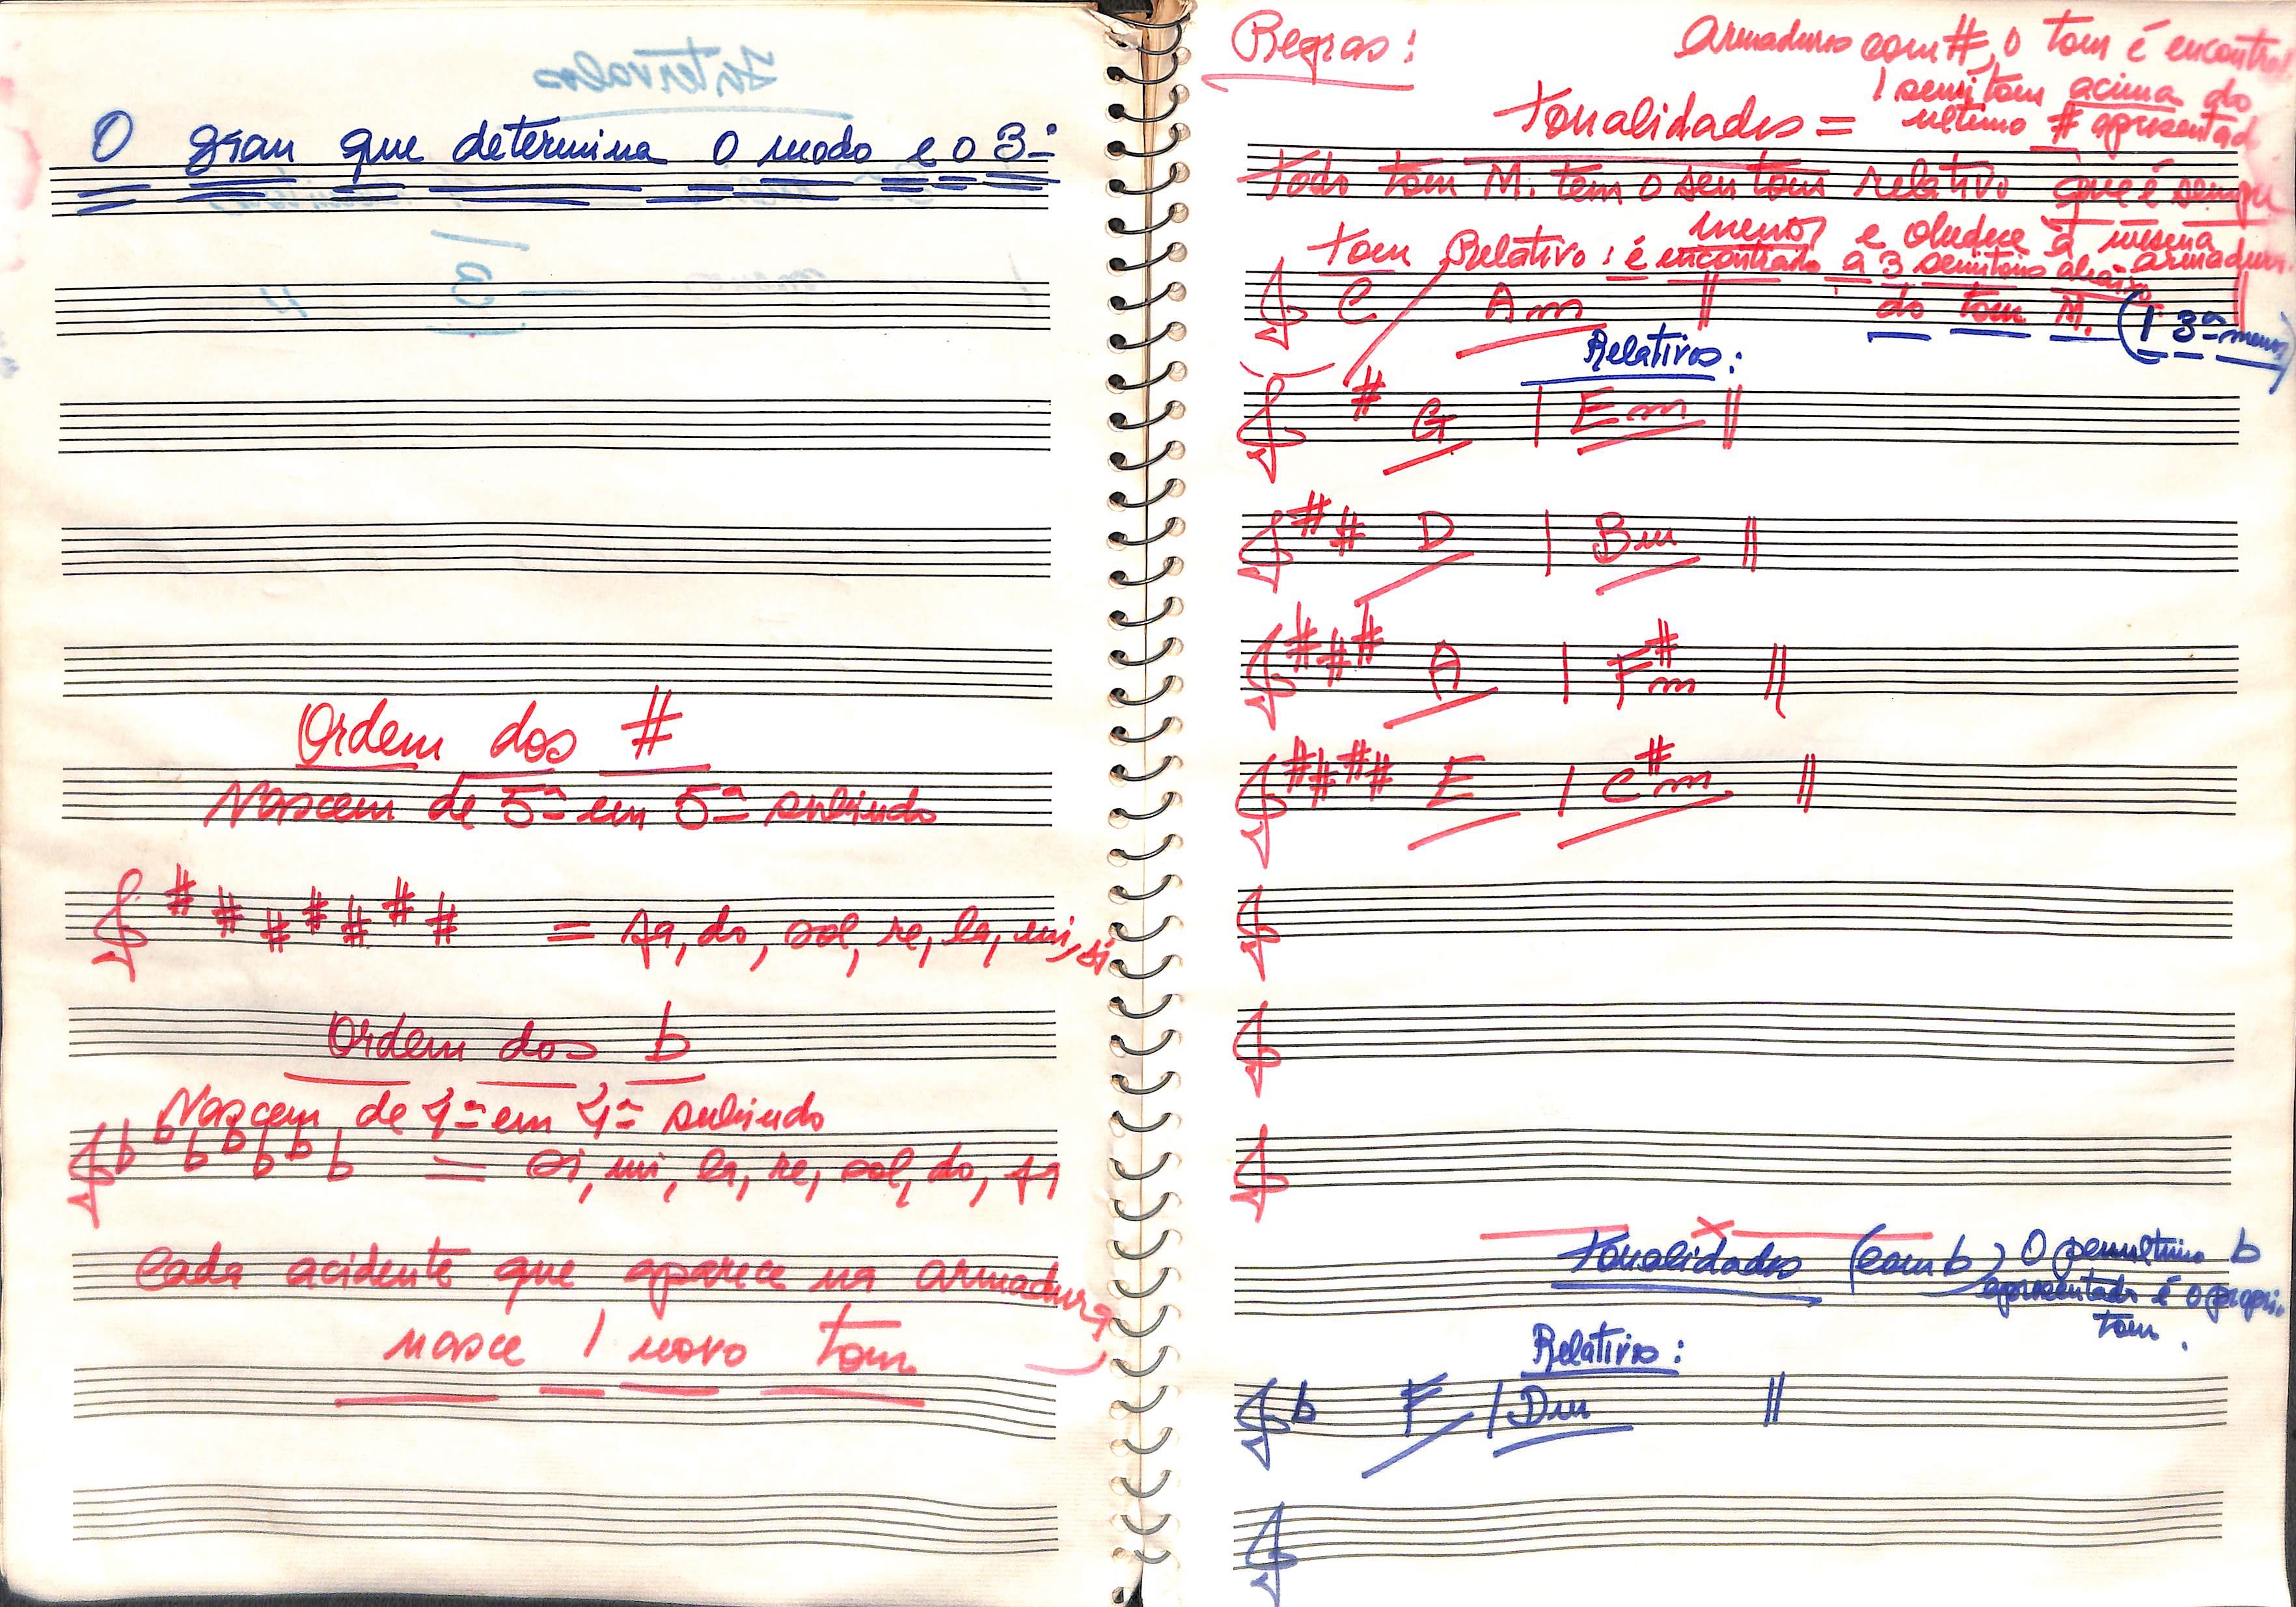 O grau que determina o modo e o 3º
Ordem dos #
Nascem de 5ª em 5ª subindo
# # # # # # # = fa, do, sol, re, la, mi, si
Ordem dos b
Nascem de 4ª em 4ª subindo
b b b b b b b = si, mi, la, re, sol, do, fa
Cada acidente que aparece na armadura
nasce 1 novo tom
Regras:
Armaduras com #, o tom é encontra
1 semitom acima do
ultimo # apresentad
Tonalidades =
Todo tom M. tem o seu tom relativo que é sempre
menor e obedece à mesma
armadura
Tom Relativo: é encontrado a 3 semitons abaixo
do tom M. (1 3ª menor)
C / Am
Relativos:
# G | Em
# # D | Bm
# # # A | F#m
# # # # E | C#m
Tonalidades (com b) O penultimo b
apresentado é o propri
tom.
Relativos:
b F | Dm